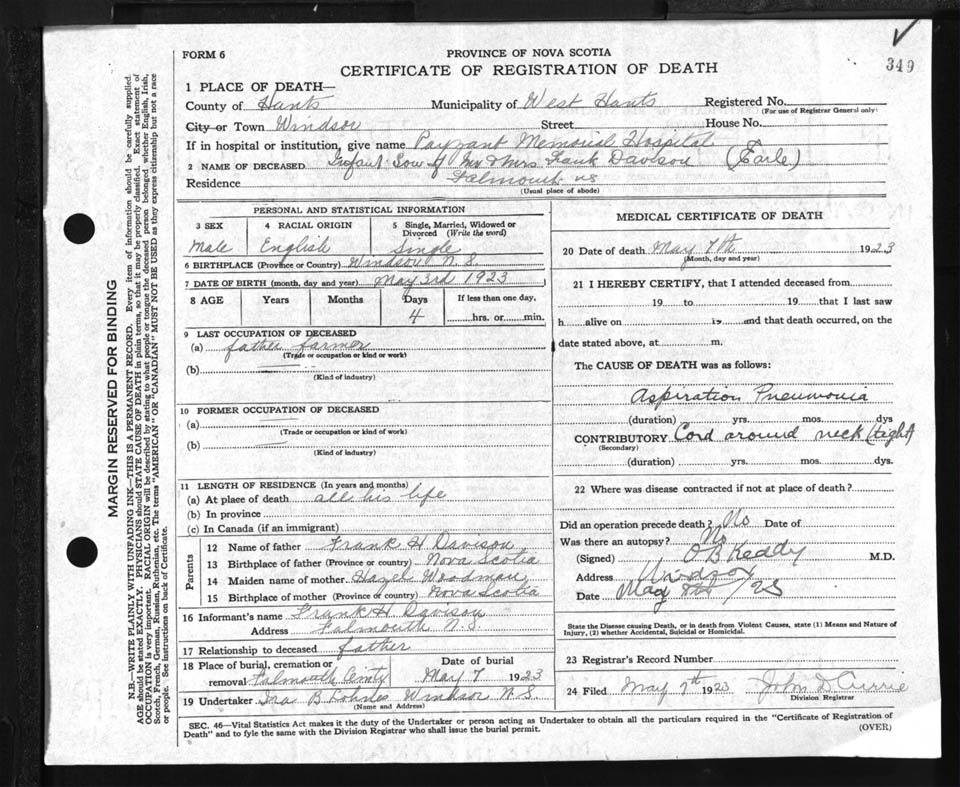 349
FORM 6
PROVINCE OF NOVA SCOTIA
CERTIFICATE OF REGISTRATION OF DEATH
1 PLACE OF DEATH—
County of Hants Municipality of West Hants Registered No.
(For use of Registrar General only)
City or Town Windsor Street House No.
If in hospital or institution, give name Payzant Memorial Hospital
2 NAME OF DECEASED Infant Son of Mr & Mrs Frank Davison (Earle)
Residence Falmouth NS
(Usual place of abode)
PERSONAL AND STATISTICAL INFORMATION
3 SEX 4 RACIAL ORIGIN 5 Single, Married, Widowed or Divorced (Write the word)
Male English Single
6 BIRTHPLACE (Province or Country) Windsor N.S.
7 DATE OF BIRTH (month, day and year) May 3rd 1923
8 AGE Years Months Days If less than one day,
4 hrs. or min.
9 LAST OCCUPATION OF DECEASED
(a) father farmer
(Trade or occupation or kind or work)
(b)
(Kind of industry)
10 FORMER OCCUPATION OF DECEASED
(a)
(Trade or occupation or kind of work)
(b)
(Kind of industry)
11 LENGTH OF RESIDENCE (In years and months)
(a) At place of death all his life
(b) In province
(c) In Canada (if an immigrant)
Parents
12 Name of father Frank H Davison
13 Birthplace of father (Province or country) Nova Scotia
14 Maiden name of mother Hazel Woodman
15 Birthplace of mother (Province or country) Nova Scotia
16 Informant's name Frank H. Davison
Address Falmouth N.S.
17 Relationship to deceased father
18 Place of burial, cremation or removal Falmouth Date of burial May 7 1923
19 Undertaker Ira B Windsor N.S.
(Name and Address)
MEDICAL CERTIFICATE OF DEATH
20 Date of death May 7th 1923
(Month, day and year)
21 I HEREBY CERTIFY, that I attended deceased from
19 to 19 that I last saw
h alive on 19 and that death occurred, on the
date stated above, at m.
The CAUSE OF DEATH was as follows:
Aspiration Pneumonia
(duration) yrs. mos. dys
CONTRIBUTORY Cord around neck (tight)
(Secondary)
(duration) yrs. mos. dys.
22 Where was disease contracted if not at place of death?
Did an operation precede death? No Date of
Was there an autopsy? No
(Signed) O B Keddy M.D.
Address Windsor
Date May 8th /23
State the Disease causing Death, or in death from Violent Causes, state (1) Means and Nature of
Injury, (2) whether Accidental, Suicidal or Homicidal.
23 Registrar's Record Number
24 Filed May 7th 1923 John D Currie
Division Registrar
SEC. 46—Vital Statistics Act makes it the duty of the Undertaker or person acting as Undertaker to obtain all the particulars required in the "Certificate of Registration of
Death" and to fyle the same with the Division Registrar who shall issue the burial permit.
(OVER)
MARGIN RESERVED FOR BINDING
N.B.—WRITE PLAINLY WITH UNFADING INK—THIS IS A PERMANENT RECORD. Every item of information should be carefully supplied.
AGE should be stated EXACTLY. PHYSICIANS should STATE CAUSE OF DEATH in plain terms, so that it may be properly classified. Exact statement of
OCCUPATION is very important. RACIAL ORIGIN will be described by stating to what people or tongue the deceased person belonged whether English, Irish,
Scotch, French, German, Russian, Ruthenian, etc. The terms "AMERICAN" OR "CANADIAN" MUST NOT BE USED as they express citizenship but not a race
or people. See instructions on back of Certificate.